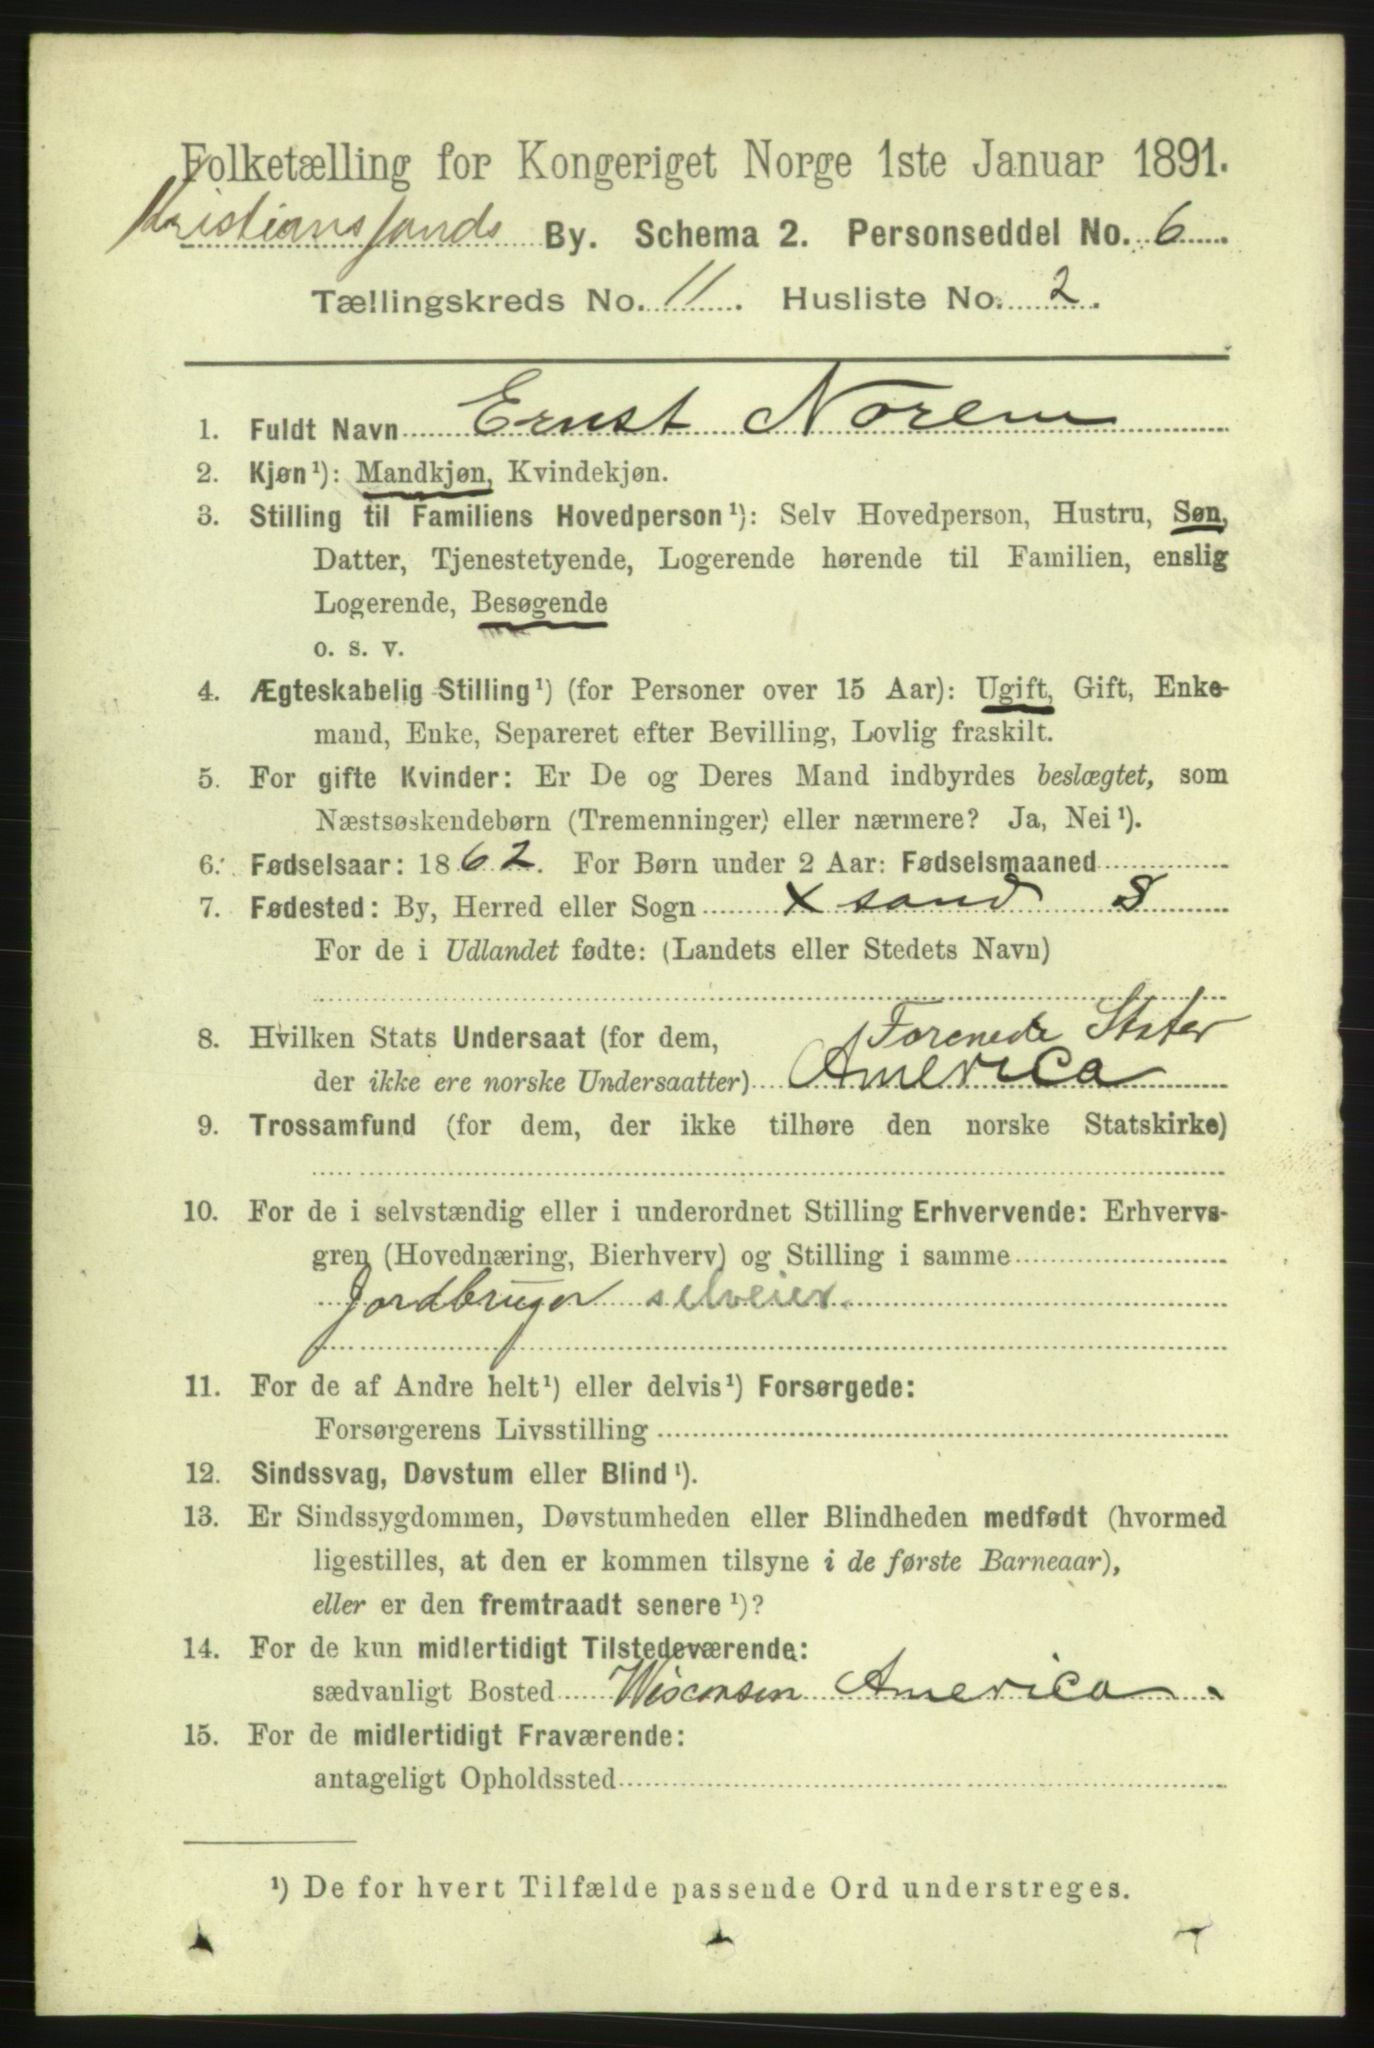 Folketælling for Kongeriget Norge 1ste Januar 1891.
Kristianssands By. Schema 2. Personseddel No. 6
Tællingskreds No. 11. Husliste No. 2.
1. Fuldt Navn Ernst Norem
2. Kjøn¹): Mandkjøn, Kvindekjøn.
3. Stilling til Familiens Hovedperson¹): Selv Hovedperson, Hustru, Søn,
Datter, Tjenestetyende, Logerende hørende til Familien, enslig
Logerende, Besøgende
o. s. v.
4. Ægteskabelig Stilling¹) (for Personer over 15 Aar): Ugift, Gift, Enke-
mand, Enke, Separeret efter Bevilling, Lovlig fraskilt.
5. For gifte Kvinder: Er De og Deres Mand indbyrdes beslægtet, som
Næstsøskendebørn (Tremenninger) eller nærmere? Ja, Nei¹).
6. Fødselsaar: 1862. For Børn under 2 Aar: Fødselsmaaned
7. Fødested: By, Herred eller Sogn Xsand S
For de i Udlandet fødte: (Landets eller Stedets Navn)
8. Hvilken Stats Undersaat (for dem, Forenede Stater
der ikke ere norske Undersaatter) America
9. Trossamfund (for dem, der ikke tilhøre den norske Statskirke)
10. For de i selvstændig eller i underordnet Stilling Erhvervende: Erhvervs-
gren (Hovednæring, Bierhverv) og Stilling i samme
Jordbruger selveier.
11. For de af Andre helt¹) eller delvis¹) Forsørgede:
Forsørgerens Livsstilling
12. Sindssvag, Døvstum eller Blind¹).
13. Er Sindssygdommen, Døvstumheden eller Blindheden medfødt (hvormed
ligestilles, at den er kommen tilsyne i de første Barneaar),
eller er den fremtraadt senere¹)?
14. For de kun midlertidigt Tilstedeværende:
sædvanligt Bosted Wisconsin America.
15. For de midlertidigt Fraværende:
antageligt Opholdssted
¹) De for hvert Tilfælde passende Ord understreges.